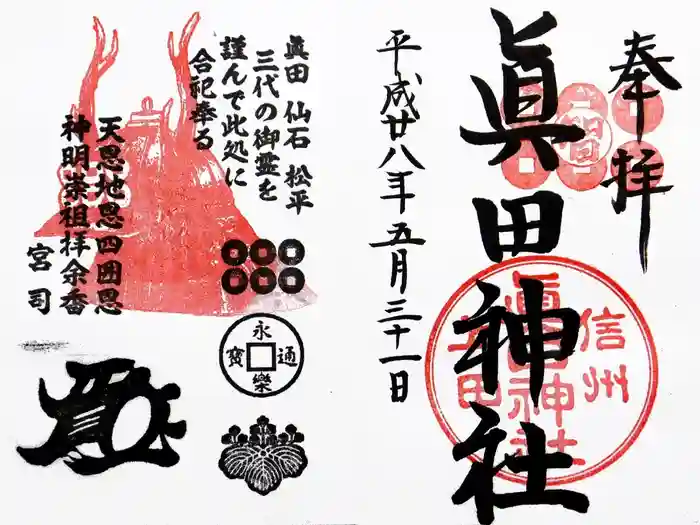 奉拝
眞田神社
信州
上田
眞田神社
平成廿八年五月三十一日
眞田 仙石 松平
三代の御霊を
謹んで此処に
合祀奉る
天恩地恩四囲恩
神明崇祖拝余香
宮司
永樂通寳